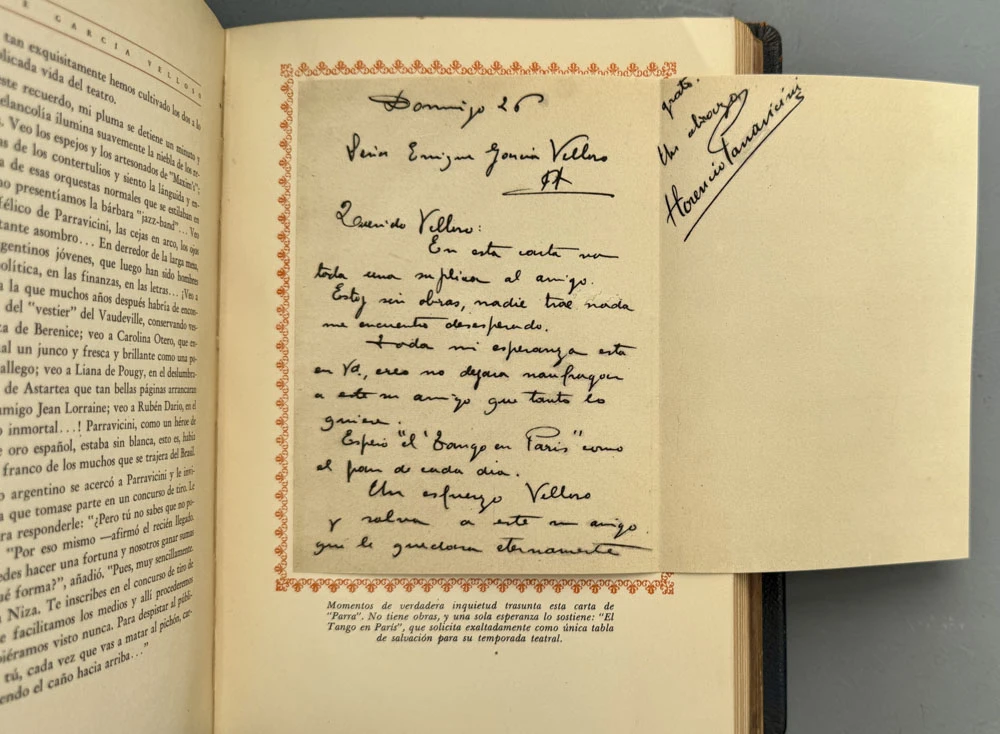 E GARCÍA VELLOSO
tan exquisitamente hemos cultivado los dos a lo
licada vida del teatro.
este recuerdo, mi pluma se detiene un minuto y
elancolía ilumina suavemente la niebla de los
. Veo los espejos y los artesonados de "Maxim's";
as de los contertulios y siento la lánguida y
a de esas orquestas normales que se estilaban en
no presentíamos la bárbara "jazz-band"... Veo
félico de Parravicini, las cejas en arco, los ojos
tante asombro... En derredor de la larga mesa,
gentinos jóvenes, que luego han sido hombres
olítica, en las finanzas, en las letras... ¡Veo a
a la que muchos años después habría de encon-
del "vestier" del Vaudeville, conservando ves-
za de Berenice; veo a Carolina Otero, que
al un junco y fresca y brillante como una
allego; veo a Liana de Pougy, en el deslumbra-
de Astartea que tan bellas páginas arrancaran
amigo Jean Lorraine; veo a Rubén Darío, en el
o inmortal...! Parravicini, como un héroe de
e oro español, estaba sin blanca, esto es, había
franco de los muchos que se trajera del Brasil.
o argentino se acercó a Parravicini y le invi-
a que tomase parte en un concurso de tiro. Le
ra responderle: "¿Pero tú no sabes que no po-
"Por eso mismo —afirmó el recién llegado.
edes hacer una fortuna y nosotros ganar sumas
é forma?", añadió. "Pues, muy sencillamente.
Niza. Te inscribes en el concurso de tiro de
e facilitamos los medios y allí procederemos
biéramos visto nunca. Para despistar al públi-
tú, cada vez que vas a matar al pichón,
endo el caño hacia arriba..."
Domingo 26
Señor Enrique García Velloso
Querido Velloso:
En esta carta va
toda una suplica al amigo.
Estoy sin obras, nadie trae nada
me encuentro desesperado.
Toda mi esperanza esta
en Vd., creo no dejara naufragar
a este su amigo que tanto lo
quiere.
Espero "el Tango en Paris" como
el pan de cada dia.
Un esfuerzo Velloso
y salva a este su amigo
que le quedara eternamente
grato.
Un abrazo
Florencio Parravicini
Momentos de verdadera inquietud trasunta esta carta de
"Parra". No tiene obras, y una sola esperanza lo sostiene: "El
Tango en París", que solicita exaltadamente como única tabla
de salvación para su temporada teatral.